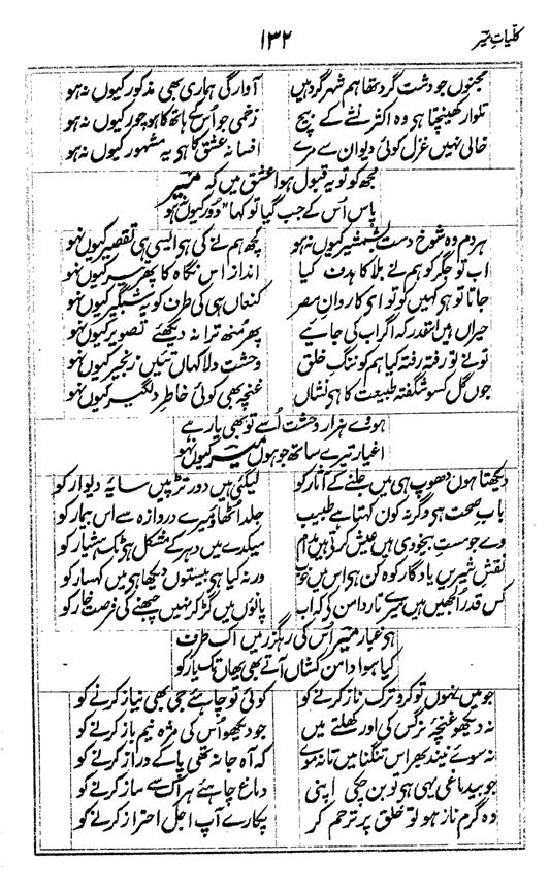 کلیاتِ میر
۱۳۲
مجنوں جو دشت گرد تھا ہم شہر گرد ہیں آوارگی ہماری بھی مذکور کیوں نہ ہو
تلوار کھینچتا ہو وہ اکثر نشے کے بیچ زخمی جو اُس کے ہاتھ کا ہو چور کیوں نہ ہو
خالی نہیں غزل کوئی دیوان سے مرے افسانہ عشق کا ہی یہ مشہور کیوں نہ ہو
مجھ کو تو یہ قبول ہوا عشق میں کہ میرؔ
پاس اُس کے جب گیا تو کہا "دُور کیوں نہو
ہر دم وہ شوخ دست بشمشیر کیوں نہ ہو کچھ ہم نے کی ہی ایسی ہی تقصیر کیوں نہو
اب تو جگر کو ہم نے بلا کا ہدف کیا انداز اس نگاہ کا پھر تیر کیوں نہو
جاتا تو ہو کہیں کو تو ای کاروانِ مصر کنعاں ہی کی طرف کو یہ شبگیر کیوں نہو
حیراں ہیں اسقدر کہ اگر اب کی جایئے پھر منھ ترا نہ دیکھئے تصویر کیوں نہو
تو نے تو رفتہ رفتہ کیا ہم کو ننگِ خلق وحشتِ دلا کہاں تئیں زنجیر کیوں نہو
جوں گل کسو شگفتہ طبیعت کا ہی نشاں غنچہ بھی کوئی خاطرِ دلگیر کیوں نہو
ہووے ہزار وحشت اُسے تو بھی یار ہے
اغیار تیرے ساتھ جو ہوں میرؔ کیوں نہو
دیکھتا ہوں دھوپ ہی میں جلنے کے آثار کو لیگئی ہیں دور تڑپیں سایۂ دیوار کو
بابِ صحت ہی وگرنہ کون کہتا ہے طبیب جلد اٹھاؤ میرے دروازہ سے اس بیمار کو
وے جو مستِ بیخودی ہیں عیش کرتے ہیں مدام میکدے میں دہر کے مشکل ہی ٹک ہشیار کو
نقشِ شیریں یادگارِ کوہکن ہی اس میں خوب ورنہ کیا ہی بیستوں دیکھا ہی میں کہسار کو
کس قدر اُلجھیں ہیں میرے تار دامن کی کہ اب پانؤں میں گڑ کر نہیں چبھنے کی فرصت خار کو
ہی غبارِ میرؔ اس کی رہگزر میں اک طرف
کیا ہوا دامن کشاں آتے بھی یھاں تک یار کو
جو میں نہوں تو کرو ترک ناز کرنے کو کوئی تو چاہئے جی بھی نیاز کرنے کو
نہ دیکھو غنچۂ نرگس کی اور کھلتے میں جو دیکھو اُس کی مژہ نیم باز کرنے کو
نہ سوئے نیند بھر اس تنگنا میں تا نہ موئے کہ آہ جا نہ تھی پا کے دراز کرنے کو
جو بیدماغی یہی ہو تو بن چکی اپنی دماغ چاہئے ہر اک سے ساز کرنے کو
وہ گرم ناز ہو تو خلق پر ترحم کر پکارے آپ اجل احتراز کرنے کو